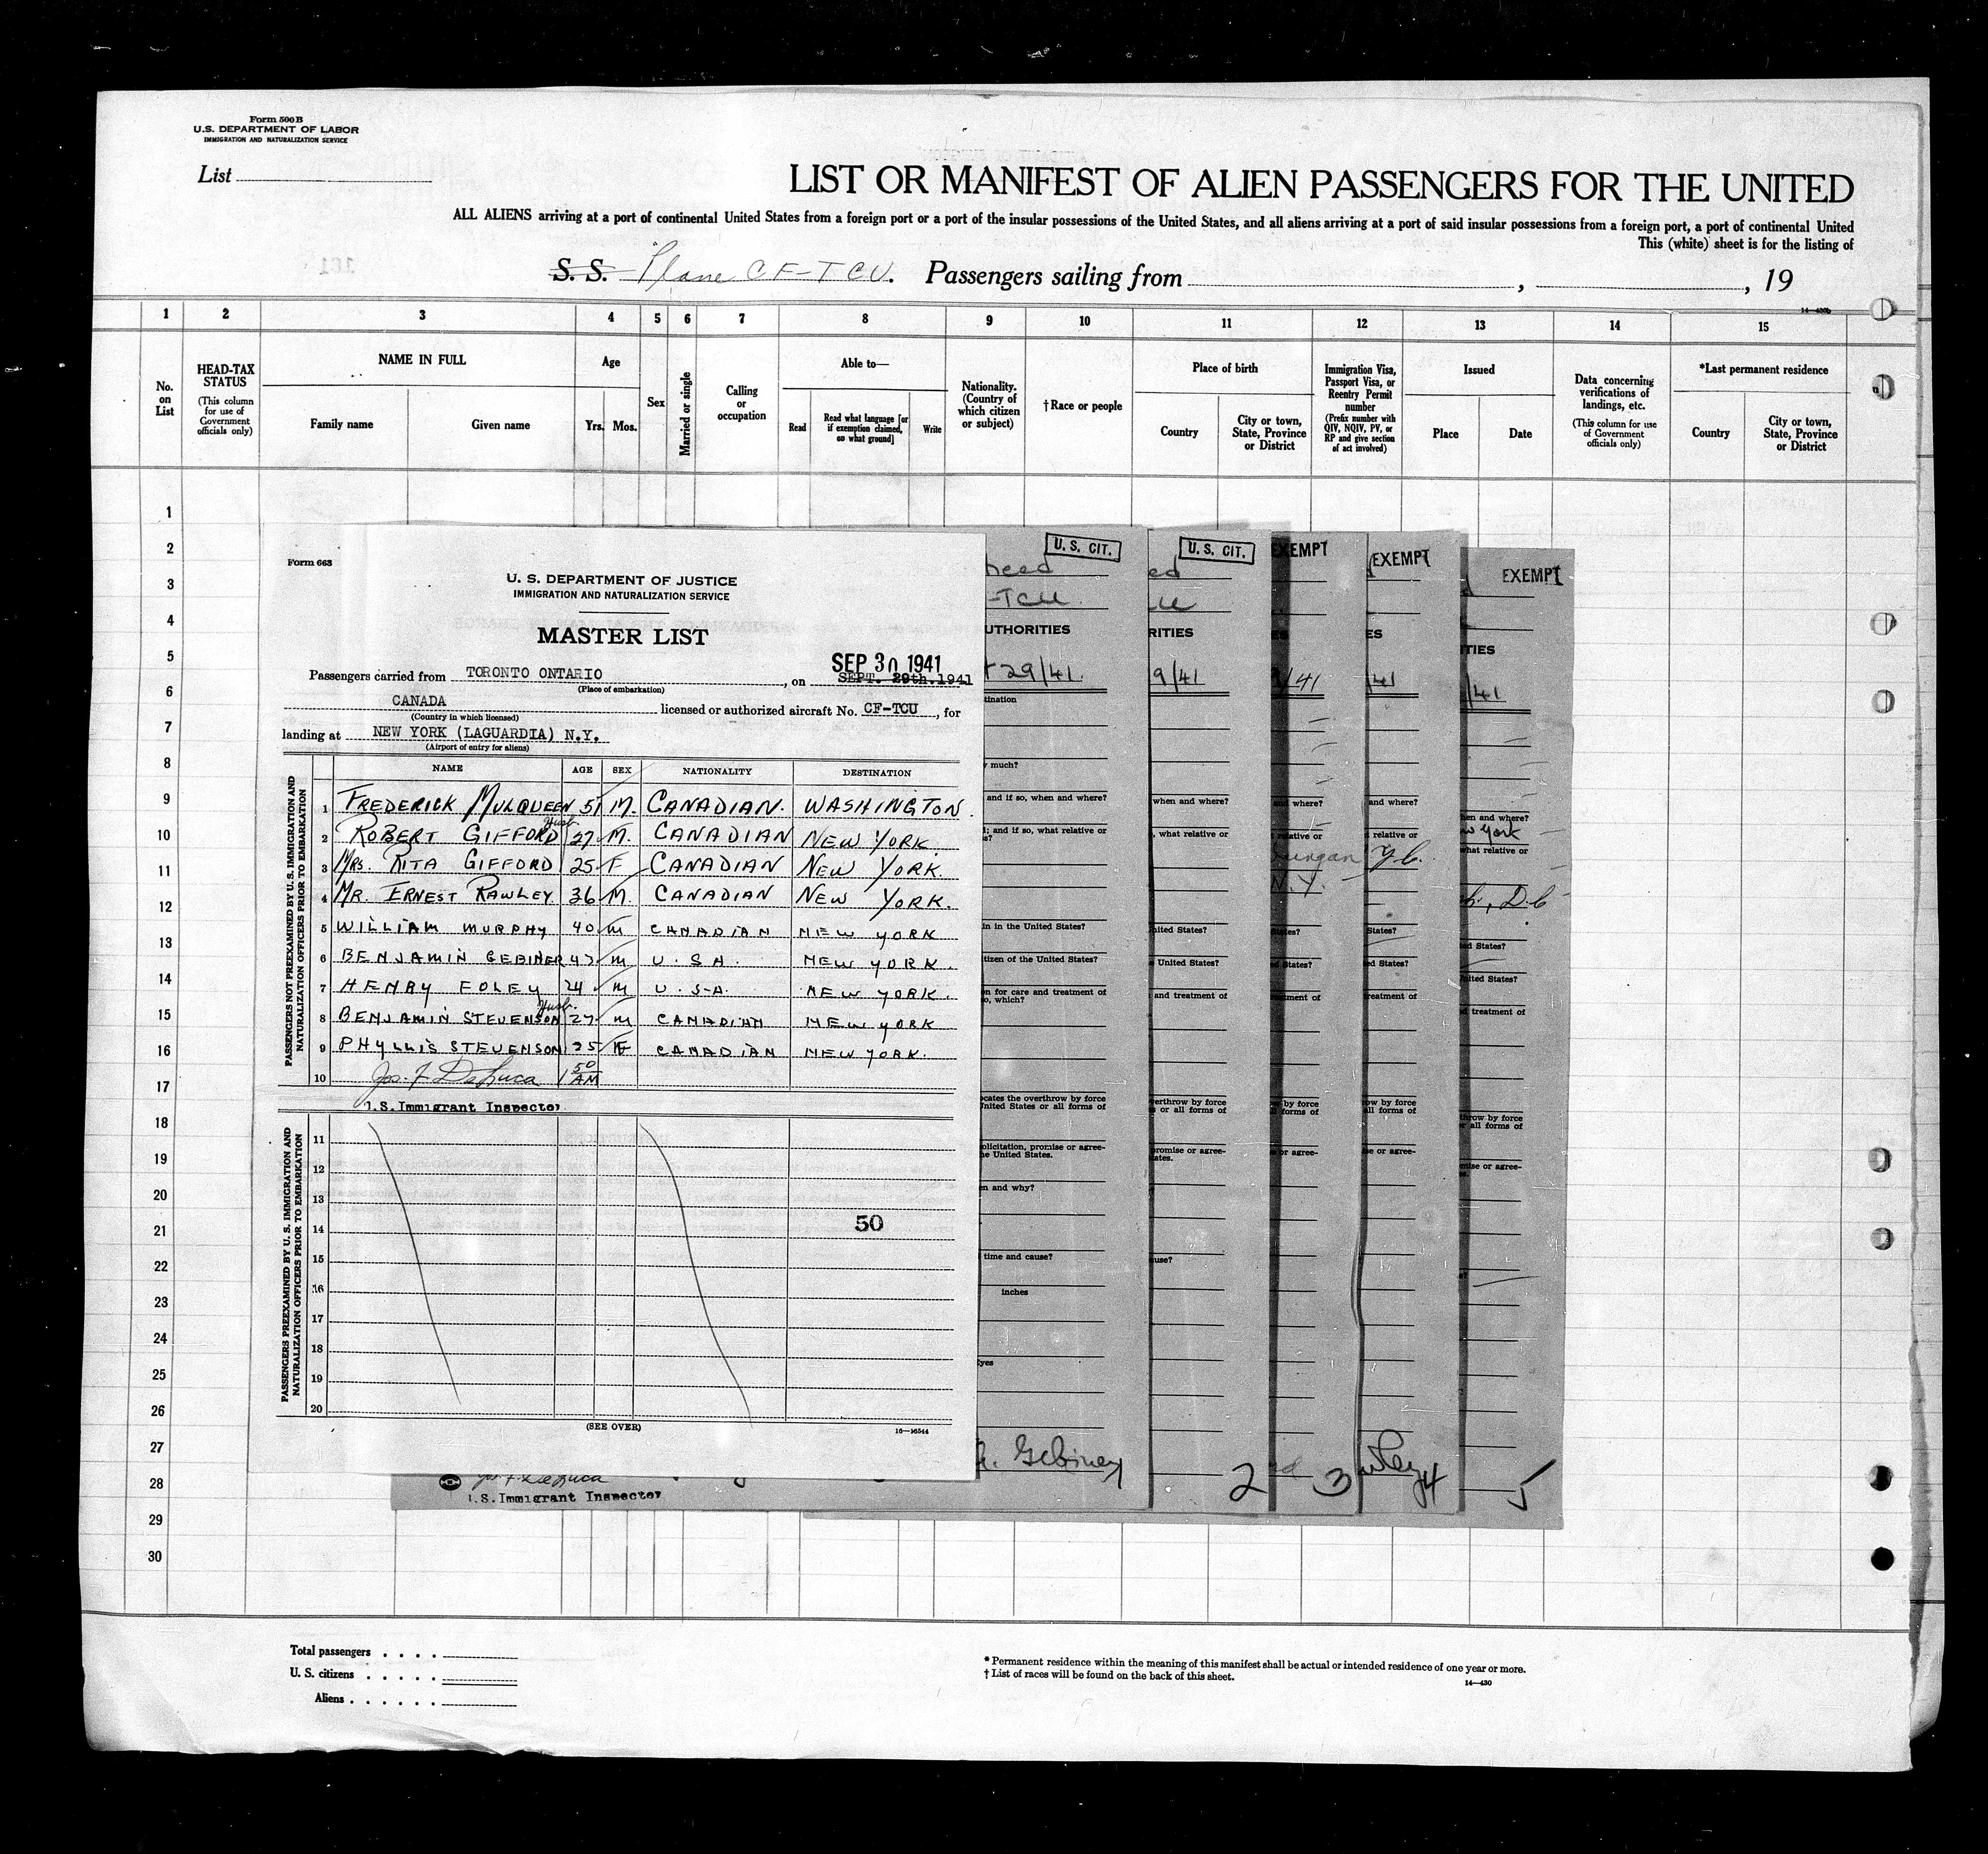 Form 500 B
U.S. DEPARTMENT OF LABOR
IMMIGRATION AND NATURALIZATION SERVICE
List
LIST OR MANIFEST OF ALIEN PASSENGERS FOR THE UNITED
ALL ALIENS arriving at a port of continental United States from a foreign port or a port of the insular possessions of the United States, and all aliens arriving at a port of said insular possessions from a foreign port, a port of continental United
This (white) sheet is for the listing of
S. S. Plane CF-TCU. Passengers sailing from , , 19
1 2 3 4 5 6 7 8 9 10 11 12 13 14 15
No. on List
HEAD-TAX STATUS (This column for use of Government officials only)
NAME IN FULL
Family name Given name
Age
Yrs. Mos.
Sex
Married or single
Calling or occupation
Able to—
Read
Read what language [or if exemption claimed, on what ground]
Write
Nationality. (Country of which citizen or subject)
†Race or people
Place of birth
Country
City or town, State, Province or District
Immigration Visa, Passport Visa, or Reentry Permit number
(Prefix number with QIV, NQIV, PV, or RP and give section of act involved)
Issued
Place Date
Data concerning verifications of landings, etc.
(This column for use of Government officials only)
*Last permanent residence
Country
City or town, State, Province or District
1
2
3
4
5
6
7
8
9
10
11
12
13
14
15
16
17
18
19
20
21
22
23
24
25
26
27
28
29
30
Form 663
U. S. DEPARTMENT OF JUSTICE
IMMIGRATION AND NATURALIZATION SERVICE
MASTER LIST
SEP 30 1941
Passengers carried from TORONTO ONTARIO , on SEPT. 29th.1941
(Place of embarkation)
CANADA licensed or authorized aircraft No. CF-TCU , for
(Country in which licensed)
landing at NEW YORK (LAGUARDIA) N.Y.
(Airport of entry for aliens)
NAME AGE SEX NATIONALITY DESTINATION
PASSENGERS NOT PREEXAMINED BY U.S. IMMIGRATION AND NATURALIZATION OFFICERS PRIOR TO EMBARKATION
1 FREDERICK MULQUEEN 51 M. CANADIAN. WASHINGTON.
2 ROBERT GIFFORD 27 M. CANADIAN NEW YORK
3 MRS. RITA GIFFORD 25 F CANADIAN NEW YORK.
4 MR. ERNEST RAWLEY 36 M. CANADIAN NEW YORK.
5 WILLIAM MURPHY 40 M CANADIAN NEW YORK
6 BENJAMIN GEBINER 43 M U.S.A. NEW YORK.
7 HENRY FOLEY 24 M U.S.A. NEW YORK.
8 BENJAMIN STEVENSON 27 M CANADIAN NEW YORK
9 PHYLLIS STEVENSON 25 F CANADIAN NEW YORK.
10 Jos. F. DeLuca 1 50 AM
U.S. Immigrant Inspector
PASSENGERS PREEXAMINED BY U. S. IMMIGRATION AND NATURALIZATION OFFICERS PRIOR TO EMBARKATION
11
12
13
14
50
15
16
17
18
19
20
(SEE OVER)
16—16544
Jos. F. DeLuca
U.S. Immigrant Inspector
U. S. CIT.
-TCU
UTHORITIES
29/41
tination
much?
and if so, when and where?
; and if so, what relative or
in in the United States?
itizen of the United States?
n for care and treatment of
o, which?
ocates the overthrow by force
United States or all forms of
olicitation, promise or agree-
he United States.
n and why?
time and cause?
inches
Eyes
Gebiner
U. S. CIT.
RITIES
9/41
when and where?
, what relative or
nited States?
United States?
and treatment of
verthrow by force
s or all forms of
promise or agree-
ates.
ause?
2
EXEMPT
/41
where?
relative or
N.Y.
States?
d States?
tment of
by force
forms of
or agree-
3
EXEMPT
ES
/41
and where?
relative or
States?
ed States?
reatment of
row by force
all forms of
se or agree-
4
EXEMPT
TIES
/41
hen and where?
w York
what relative or
h., D.C
ed States?
nited States?
d treatment of
throw by force
r all forms of
mise or agree-
5
Total passengers . . . .
U. S. citizens . . . . .
Aliens . . . . . .
* Permanent residence within the meaning of this manifest shall be actual or intended residence of one year or more.
† List of races will be found on the back of this sheet.
14—430